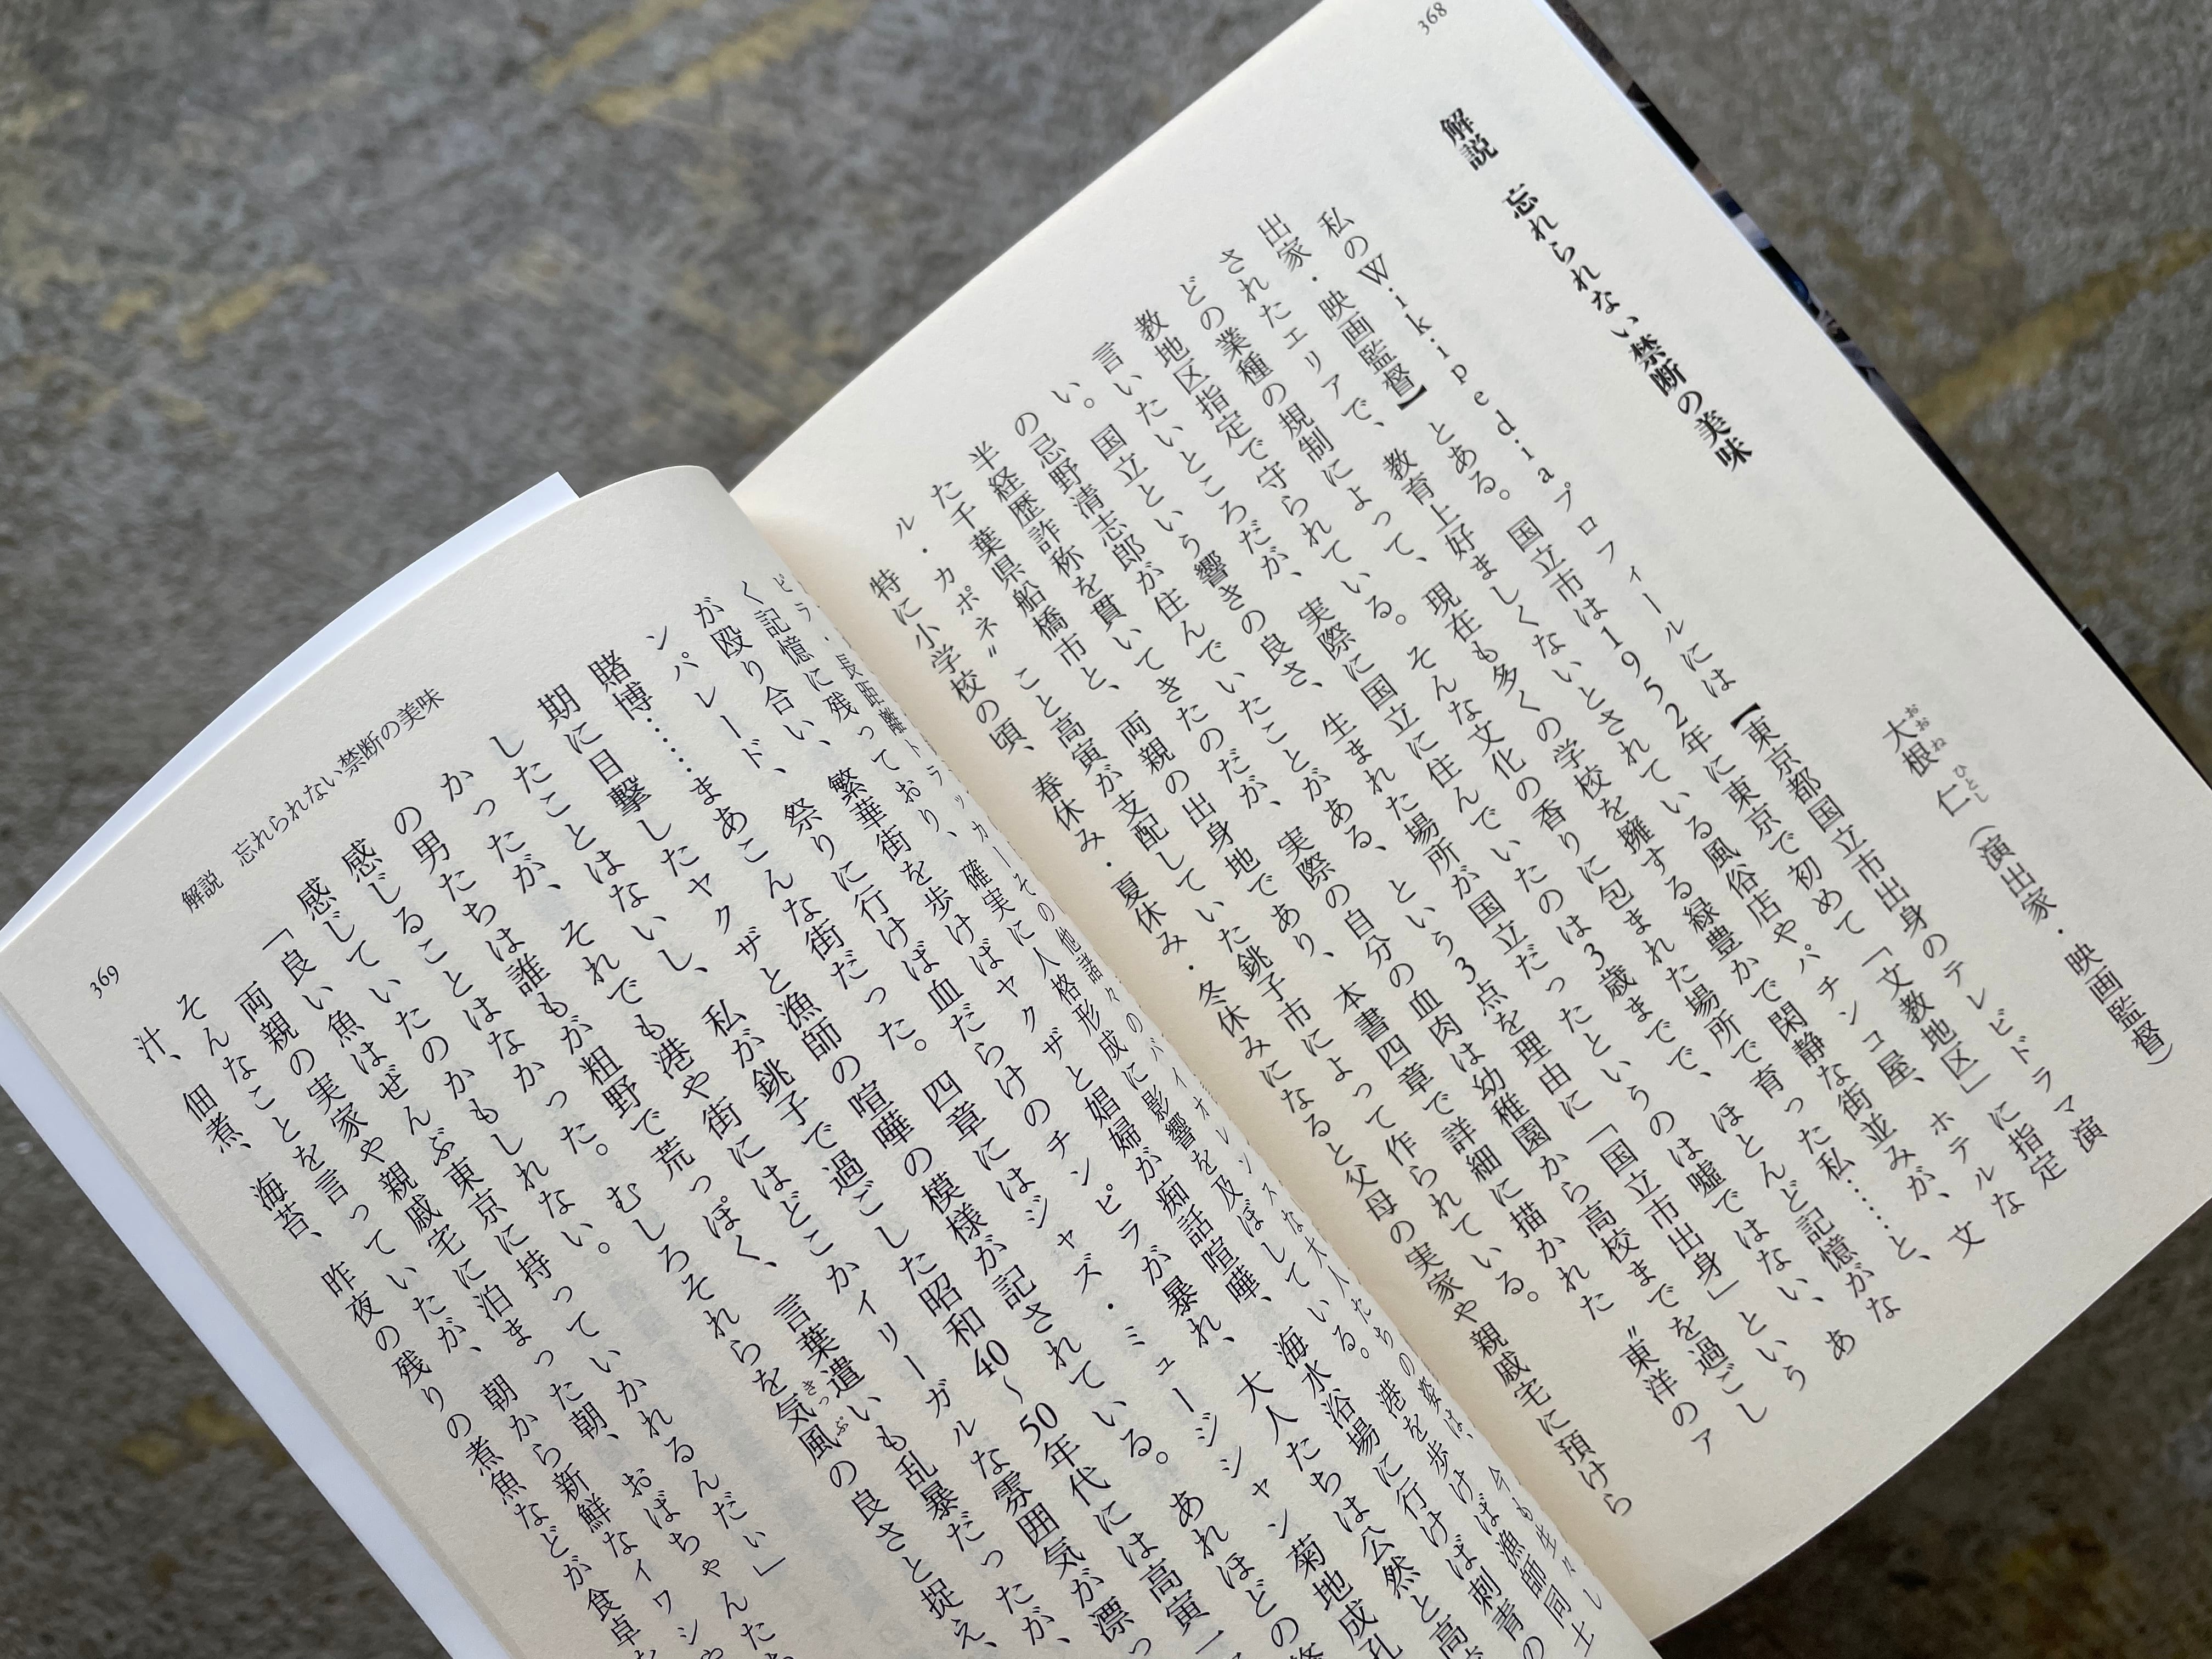 368
解説　忘れられない禁断の美味
大根仁（演出家・映画監督）
おおね　ひとし
私のWikipediaプロフィールには【東京都国立市出身のテレビドラマ演
出家・映画監督】とある。国立市は1952年に東京で初めて「文教地区」に指定
されたエリアで、教育上好ましくないとされている風俗店やパチンコ屋、ホテルな
どの業種の規制によって、現在も多くの学校を擁する緑豊かで閑静な街並みが、文
教地区指定で守られている。そんな文化の香りに包まれた場所で育った私……と、
言いたいところだが、実際に国立に住んでいたのは3歳までで、ほとんど記憶がな
い。国立という響きの良さ、生まれた場所が国立だったというのは嘘ではない、あ
の忌野清志郎が住んでいたことがある、という3点を理由に「国立市出身」という
半経歴詐称を貫いてきたのだが、実際の自分の血肉は幼稚園から高校までを過ごし
た千葉県船橋市と、両親の出身地であり、本書四章で詳細に描かれた〝東洋のア
ル・カポネ〟こと高寅が支配していた銚子市によって作られている。
特に小学校の頃、春休み・夏休み・冬休みになると父母の実家や親戚宅に預けら
ピラ・長距離トラッカーその他諸々のバイオレンスな大人たちの姿は、今も生々し
く記憶に残っており、確実に人格形成に影響を及ぼしている。港を歩けば漁師同士
が殴り合い、繁華街を歩けばヤクザと娼婦が痴話喧嘩、海水浴場に行けば刺青の
ンパレード、祭りに行けば血だらけのチンピラが暴れ、大人たちは公然と高
賭博……まあこんな街だった。四章にはジャズ・ミュージシャン菊地成孔
期に目撃したヤクザと漁師の喧嘩の模様が記されている。あれほどの
したことはないし、私が銚子で過ごした昭和40〜50年代には高寅一
かったが、それでも港や街にはどこかイリーガルな雰囲気が漂っ
の男たちは誰もが粗野で荒っぽく、言葉遣いも乱暴だったが、
感じることはなかった。むしろそれらを気風の良さと捉え、
きっぷ
感じていたのかもしれない。
「良い魚はぜんぶ東京に持っていかれるんだい」
両親の実家や親戚宅に泊まった朝、おばちゃんた
そんなことを言っていたが、朝から新鮮なイワシや
汁、佃煮、海苔、昨夜の残りの煮魚などが食卓
解説　忘れられない禁断の美味
369